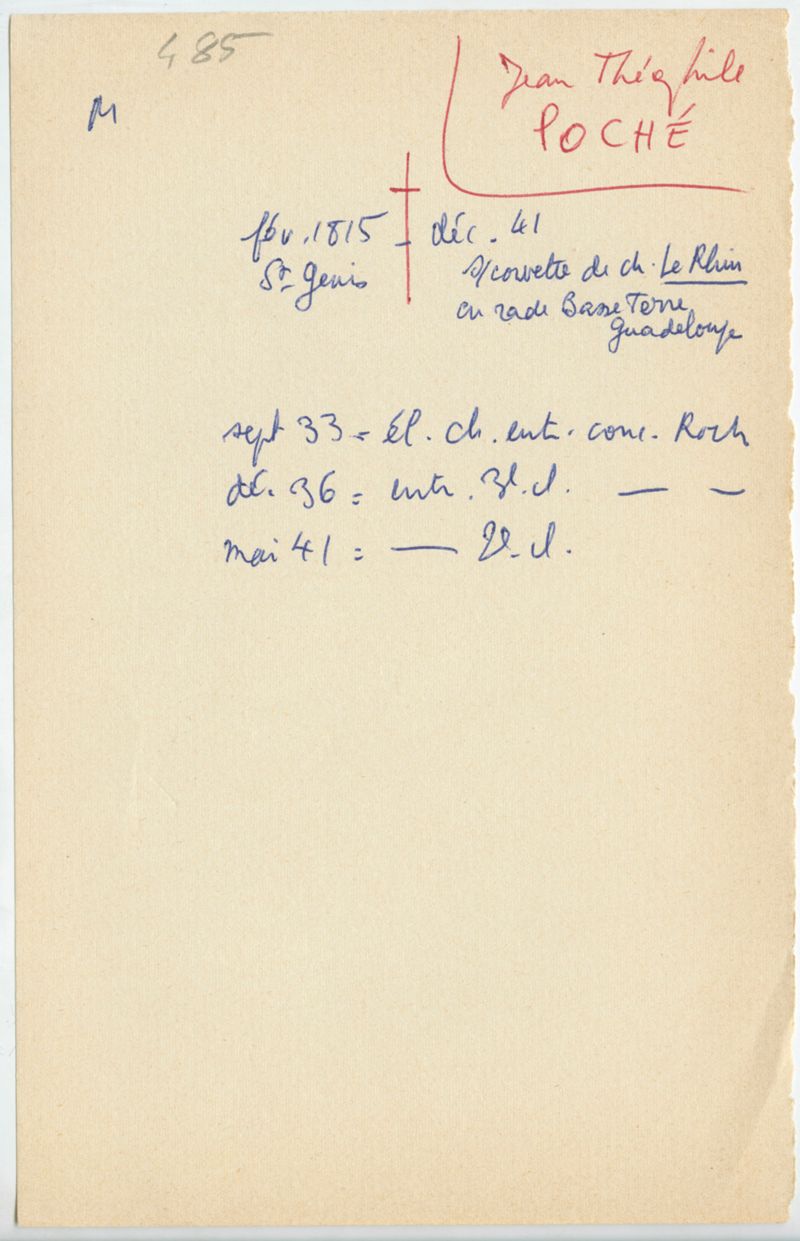 485
M
Jean Théophile
POCHÉ
fév. 1815 - déc. 41
St Genis
s/corvette de ch. Le Rhin
en rade Basse Terre
Guadeloupe
sept 33 = él. ch. entr. conc. Roch
déc. 36 = entr. 3e. cl. — —
mai 41 = — 2e. cl.